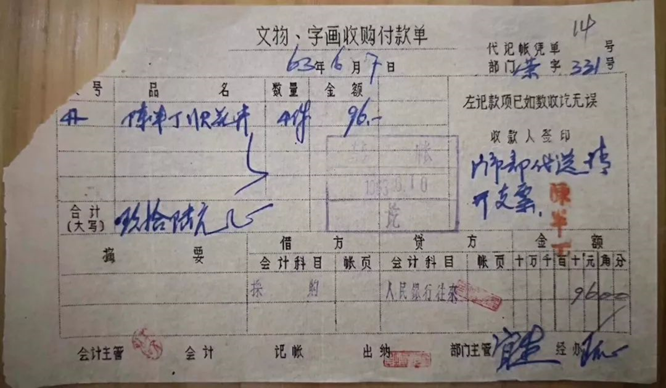 文物、字画收购付款单
14
代记帐凭单 号
63年6月7日
部门 字331号
号 品名 数量 金额
陈半丁 花卉 4件 96.-
左记款项已如数收讫无误
收款人签印
门市部代送 请
开支票.
陳半丁
帐
讫
合计
(大写) 玖拾陆元
摘要 借方 贷方 金额
会计科目 帐页 会计科目 帐页 十万千百十元角分
采购 人民银行往来 9600
会计主管 会计 记帐 出纳 部门主管 经办